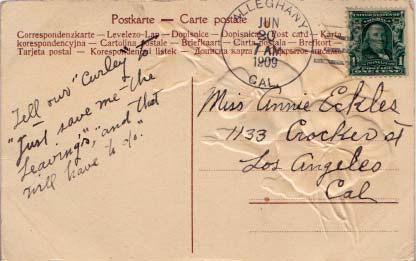 Postkarte — Carte postale
Correspondenzkarte — Levelezo-Lap — Dopisnice — Dopisnica — Post card — Karta
korespondencyjna — Cartolina postale — Briefkaart — Carta postala — Brefkort
Tarjeta postal — Korespondenční listek — Дописна карта —
ALLEGHANY
JUN
20
7 AM
1909
CAL.
Tell our "Curley" to
"Just save me the
leavings", and "that
will have to do".
Miss Annie Eckles
1133 Crocker st
Los Angeles
Cal